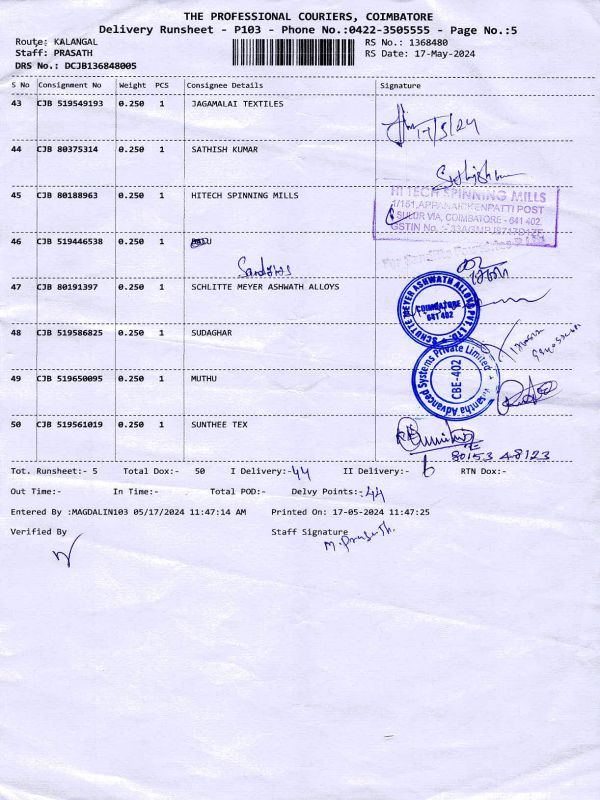 THE PROFESSIONAL COURIERS, COIMBATORE
Delivery Runsheet - P103 - Phone No.:0422-3505555 - Page No.:5
Route: KALANGAL RS No.: 1368480
Staff: PRASATH RS Date: 17-May-2024
DRS No.: DCJB136848005
S No Consignment No Weight PCS Consignee Details Signature
43 CJB 519549193 0.250 1 JAGAMALAI TEXTILES
17/5/24
44 CJB 80375314 0.250 1 SATHISH KUMAR
Sathish
45 CJB 80188963 0.250 1 HITECH SPINNING MILLS
HITECH SPINNING MILLS
1/151, APPANAICKENPATTI POST
SULUR VIA, COIMBATORE - 641 402.
46 CJB 519446538 0.250 1
47 CJB 80191397 0.250 1 SCHLITTE MEYER ASHWATH ALLOYS
SCHUTTE MEYER ASHWATH ALLOYS PVT. LTD.
COIMBATORE
641 402
48 CJB 519586825 0.250 1 SUDAGHAR
Advanced Systems Private Limited
CBE-402
49 CJB 519650095 0.250 1 MUTHU
50 CJB 519561019 0.250 1 SUNTHEE TEX
80153 48123
Tot. Runsheet:- 5 Total Dox:- 50 I Delivery:- 44 II Delivery:- 6 RTN Dox:-
Out Time:- In Time:- Total POD:- Delvy Points:- 44
Entered By :MAGDALIN103 05/17/2024 11:47:14 AM Printed On: 17-05-2024 11:47:25
Verified By Staff Signature
M. Prasath.